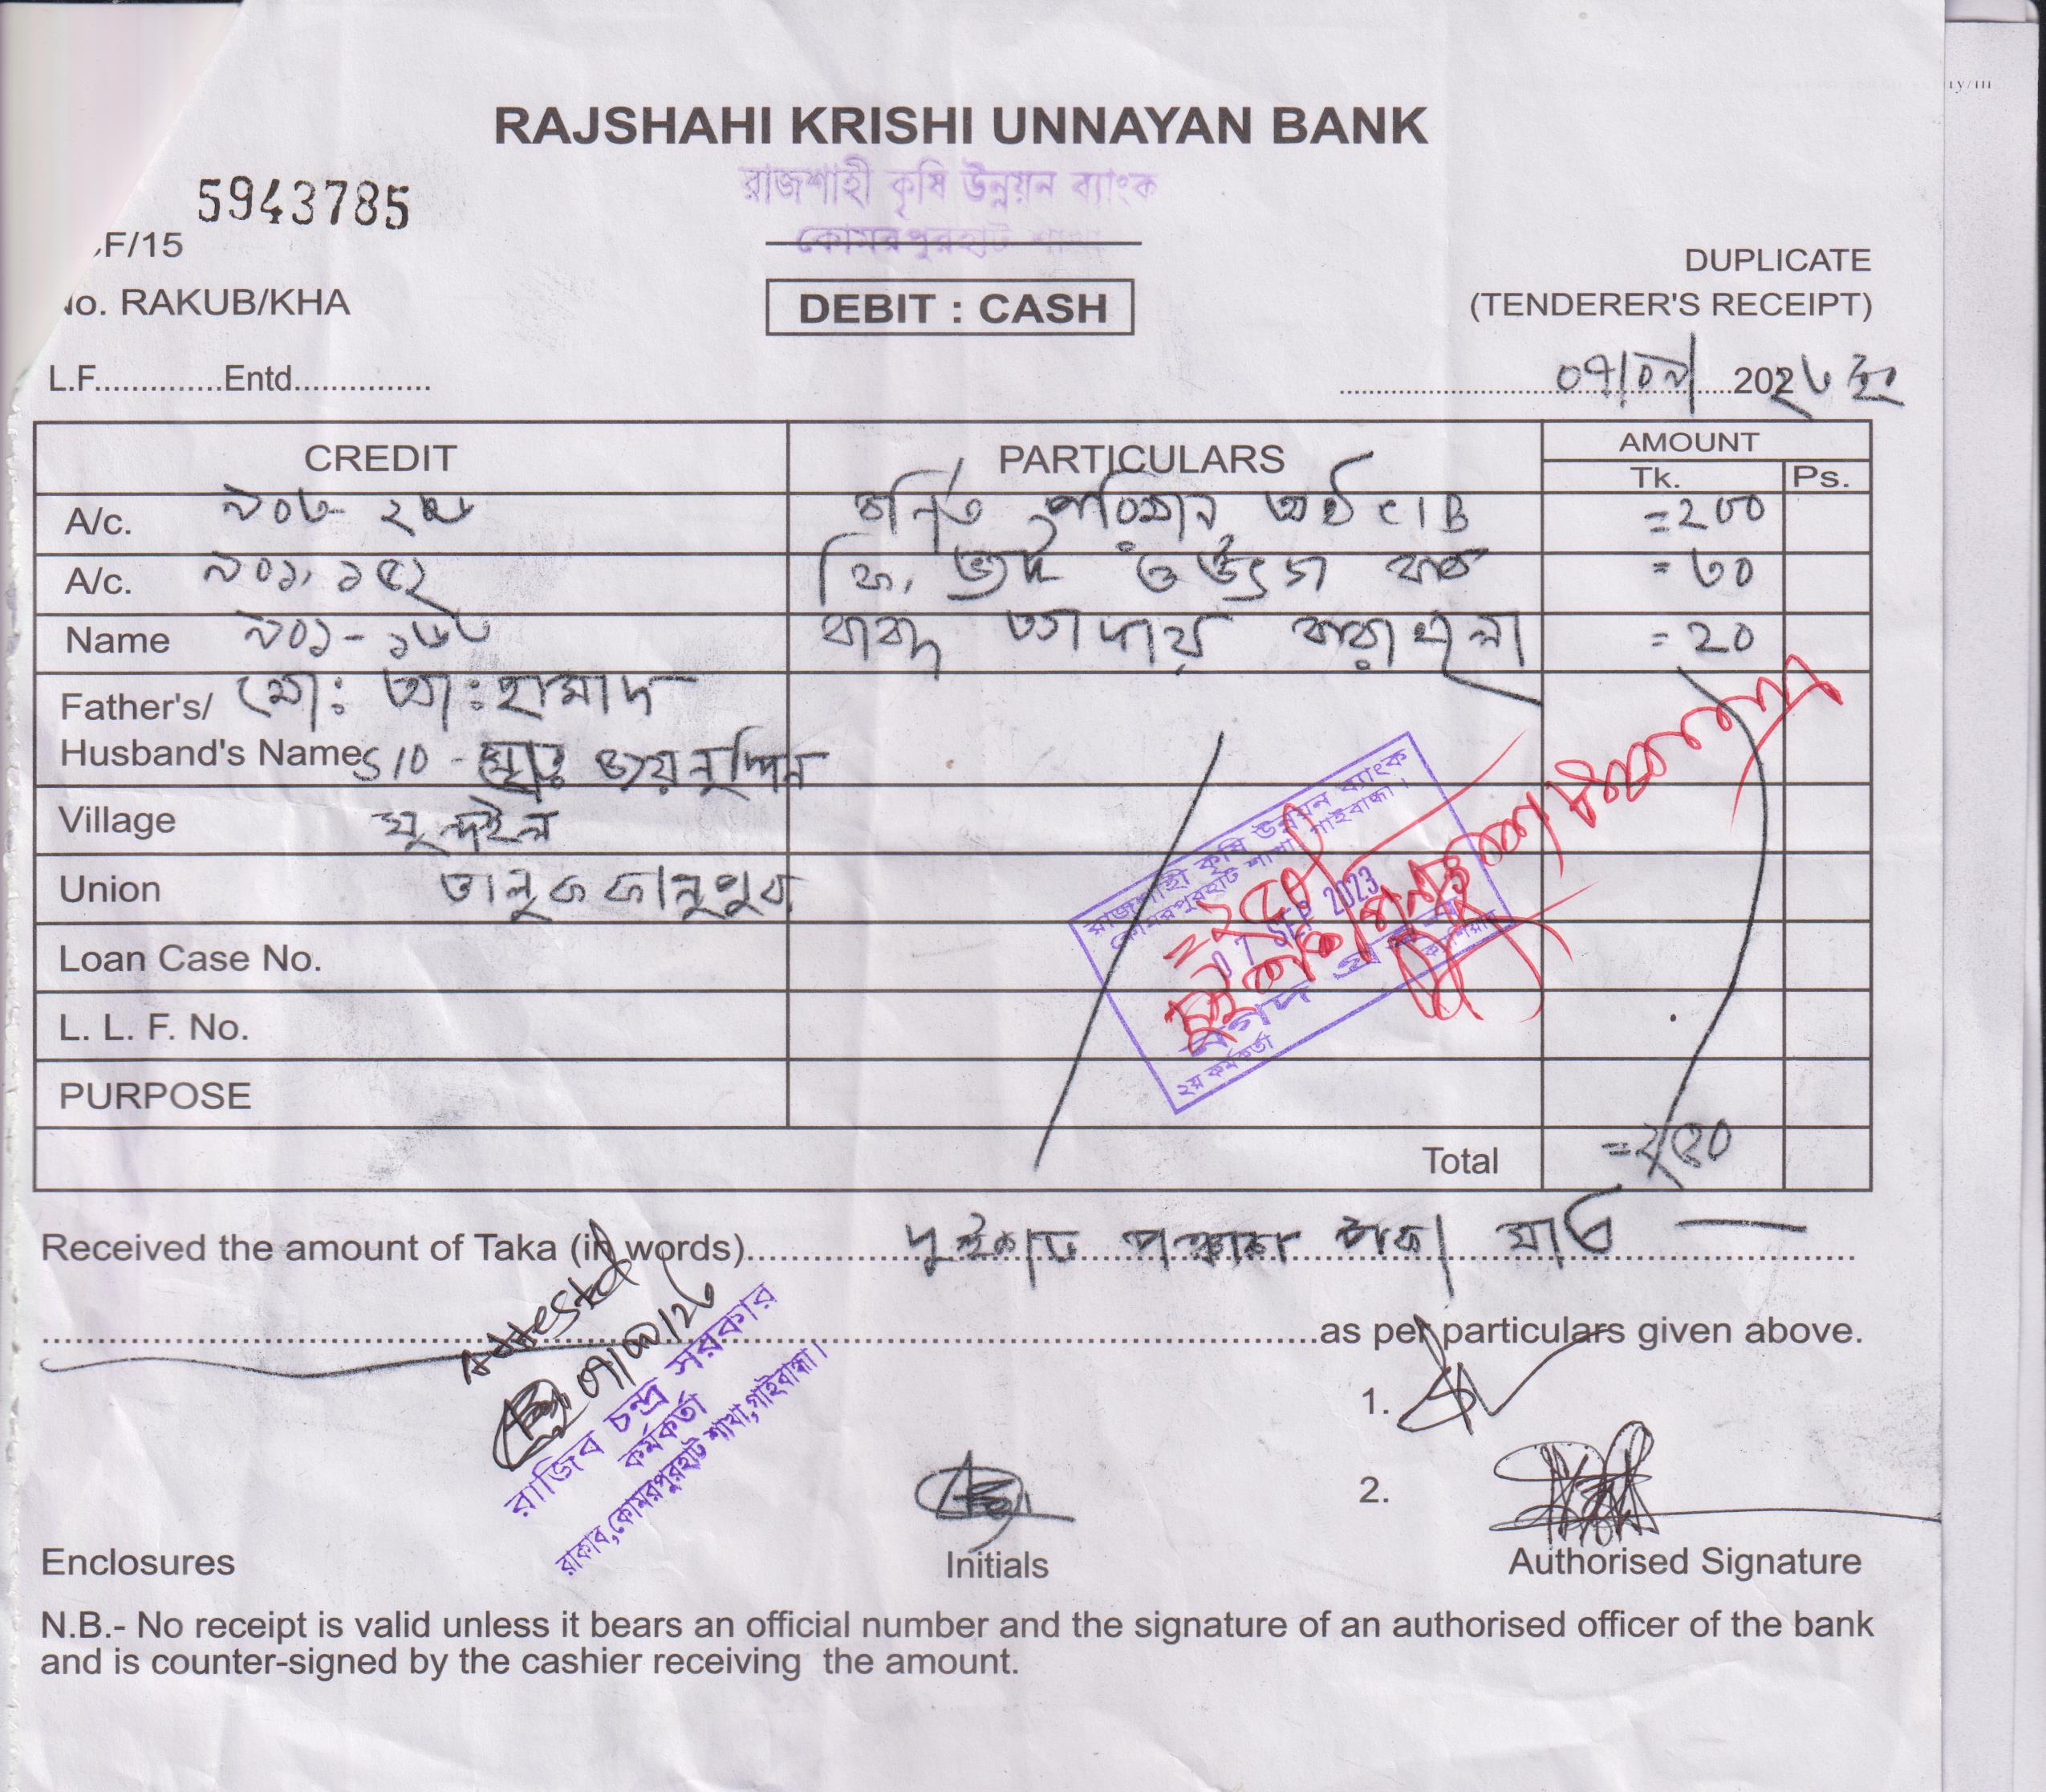 RAJSHAHI KRISHI UNNAYAN BANK
রাজশাহী কৃষি উন্নয়ন ব্যাংক
কোমরপুরহাট শাখা
5943785
F/15
No. RAKUB/KHA
DEBIT : CASH
DUPLICATE
(TENDERER'S RECEIPT)
L.F..............Entd...............
০৭/০৯/ 202
CREDIT
PARTICULARS
AMOUNT
Tk.
Ps.
A/c.
CIB
=২০০
A/c. ৯০১.১৫২
ফি,
=৩০
Name ৯০১-১৬৬
বাবদ আদায় করা হলো
=২০
Father's/
Husband's Name
মোঃ আঃ হামাদ
S/O - মৃত জয়নুদ্দিন
Village
Union তালুককানুপুর
Loan Case No.
L. L. F. No.
PURPOSE
রাজশাহী কৃষি উন্নয়ন ব্যাংক
কোমরপুরহাট শাখা গাইবান্ধা।
07 SEP 2023
২য় কর্মকর্তা
Total =২৫০
Received the amount of Taka (in words) দুইশত পঞ্চাশ টাকা মাত্র
as per particulars given above.
Attested
রাজিব চন্দ্র সরকার
কর্মকর্তা
রাকাব,কোমরপুরহাট শাখা,গাইবান্ধা।
1.
2.
Enclosures
Initials
Authorised Signature
N.B.- No receipt is valid unless it bears an official number and the signature of an authorised officer of the bank
and is counter-signed by the cashier receiving the amount.